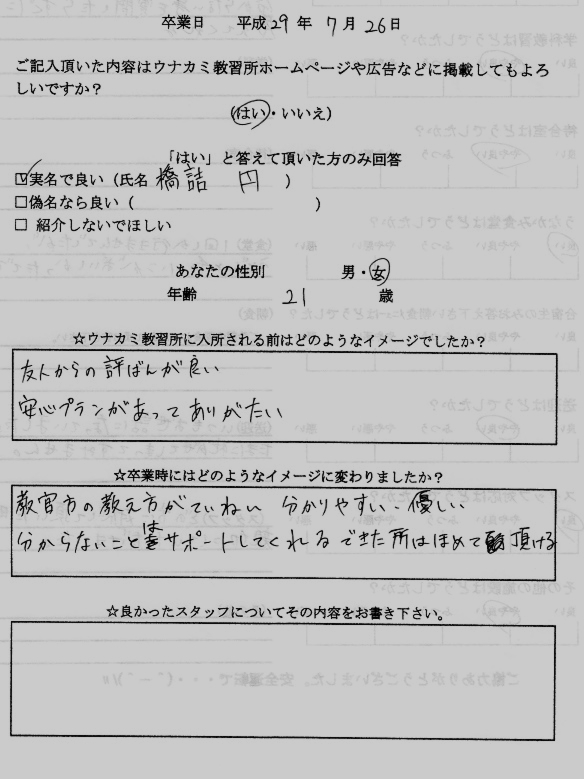 卒業日 平成29年7月26日
ご記入頂いた内容はウナカミ教習所ホームページや広告などに掲載してもよろ
しいですか?
(はい・いいえ)
「はい」と答えて頂いた方のみ回答
☑実名で良い(氏名 橋詰 円 )
□偽名なら良い( )
□ 紹介しないでほしい
あなたの性別 男・女
年齢 21 歳
☆ウナカミ教習所に入所される前はどのようなイメージでしたか?
友人からの評ばんが良い
安心プランがあってありがたい
☆卒業時にはどのようなイメージに変わりましたか?
教官の教え方がていねい 分かりやすい・優しい
分からないことはサポートしてくれる できた所はほめて頂ける
☆良かったスタッフについてその内容をお書き下さい。